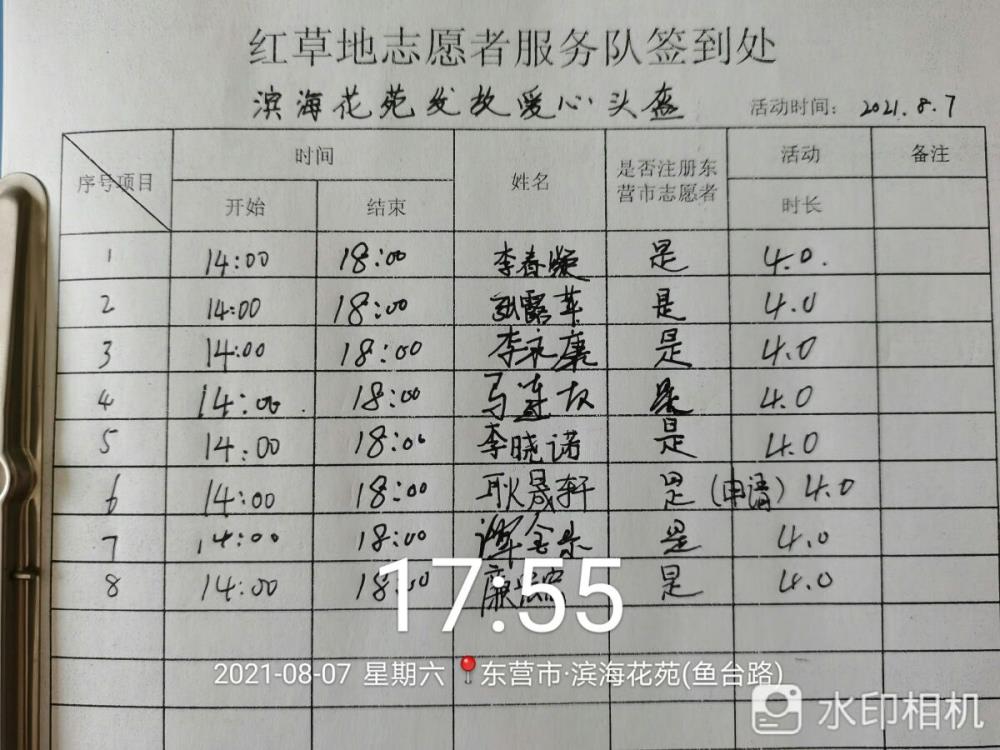 红草地志愿者服务队签到处
滨海花苑发放爱心头盔 活动时间: 2021.8.7
序号项目 时间 姓名 是否注册东营市志愿者 活动 备注
开始 结束 时长
1 14:00 18:00 李春 是 4.0.
2 14:00 18:00 是 4.0
3 14:00 18:00 李永廉 是 4.0
4 14:00 18:00 马 是 4.0
5 14:00 18:00 李晓诺 是 4.0
6 14:00 18:00 耿晟轩 是(申请) 4.0
7 14:00 18:00 是 4.0
8 14:00 18:00 是 4.0
17:55
2021-08-07 星期六 东营市·滨海花苑(鱼台路)
水印相机